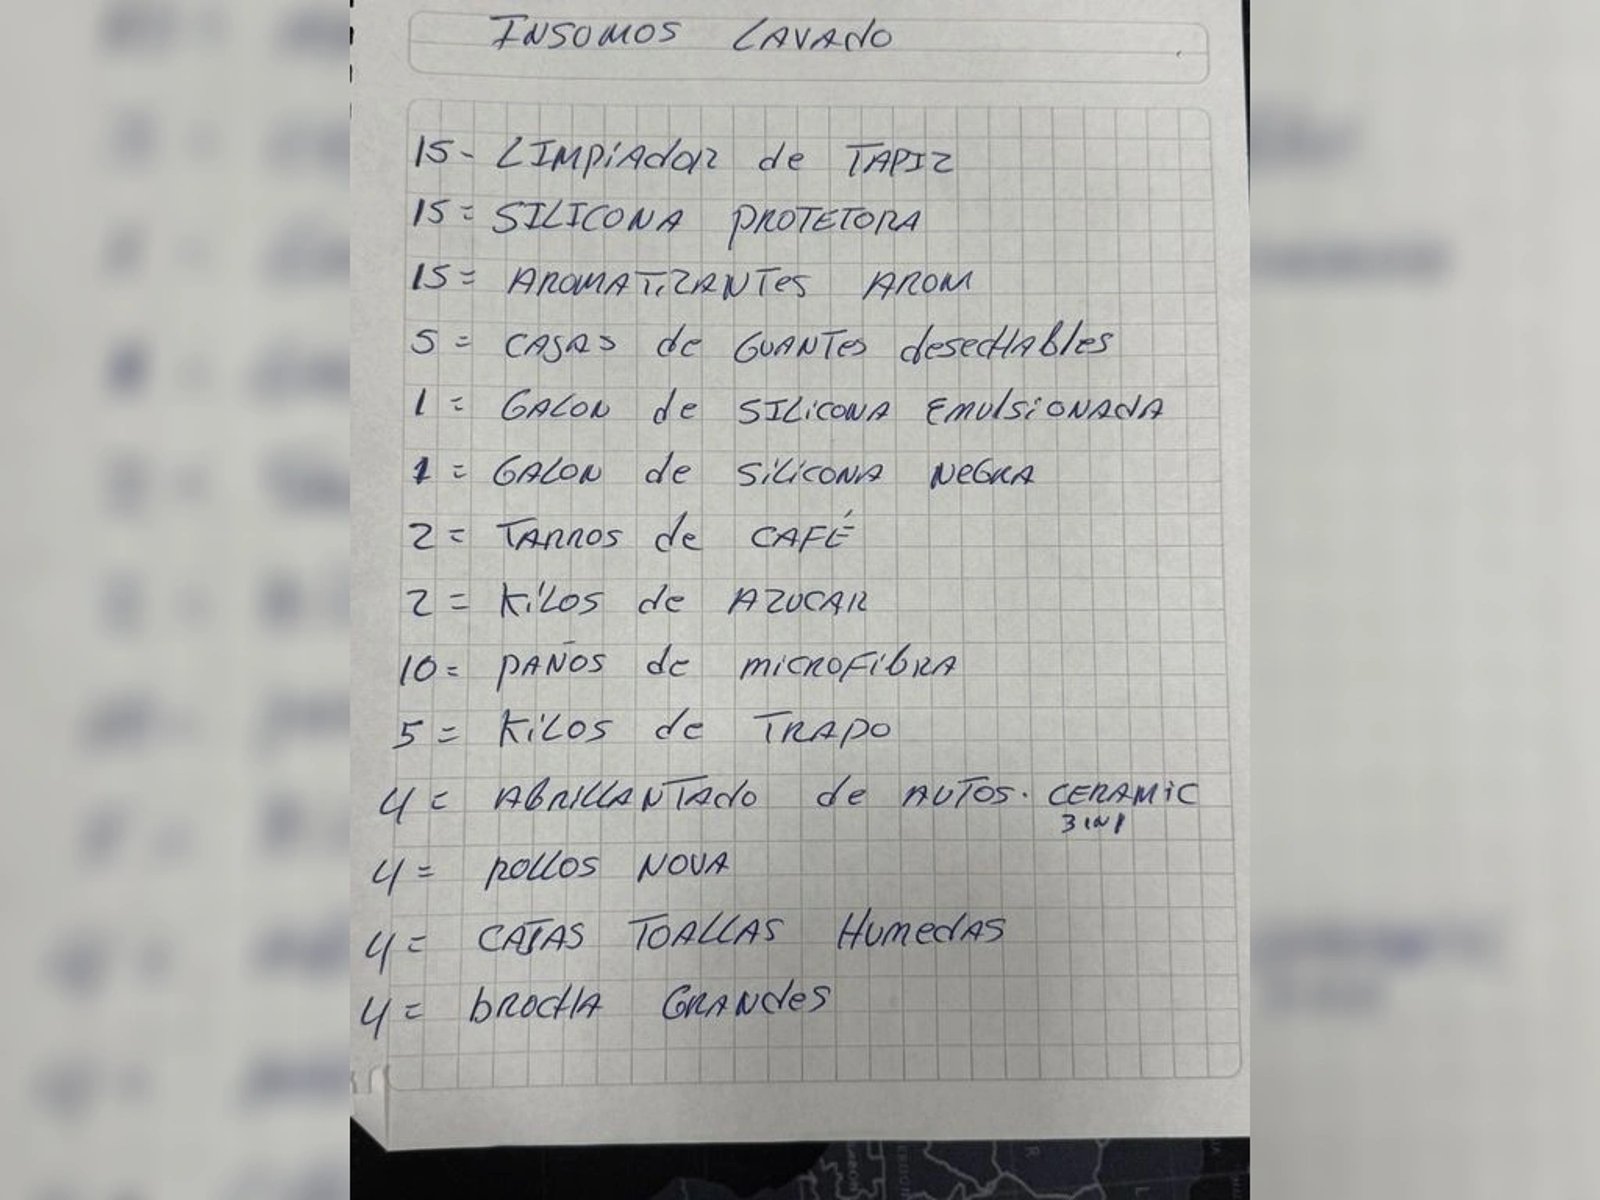 INSOMOS LAVADO
15- LIMPiAdOR de TAPIZ
15= SILICONA PROTETORA
15= AROMATIZANTES AROM
5 = CAJAS de GUANTES desecHAbles
1 = GALON de SILiCONA EmulsiONADA
1 = GALON de SiLiCONA NeGRA
2 = TARROS de CAFÉ
2 = KiLOS de AZUCAR
10= PAÑOS de miCROFibRA
5 = KiLOS de TRAPO
4 = AbRiLLANTAdO de AUTOS. CERAMiC
3 IN 1
4 = POLLOS NOVA
4 = CAJAS TOALLAS HUmedAS
4 = bROCHA GRANdes